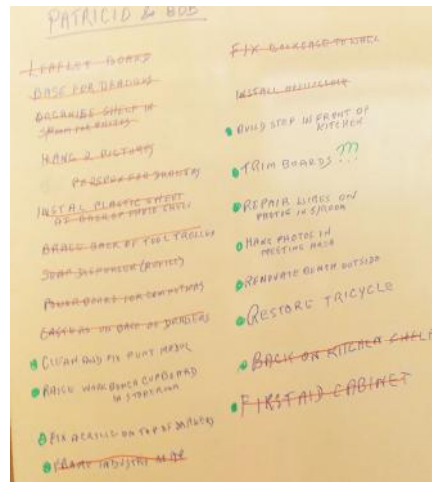 PATRICIO & BOB
LEAFLET BOARD
BASE FOR DRAGON
ORGANISE SHELF IN
HANG 2 PICTURES
PERSPEX FOR
INSTAL PLASTIC SHEET
AT BACK OF SHELF
BRACE BACK OF TOOL TROLLEY
SOAP DISPENSER
POWER BOARD FOR COMPUTERS
CASTORS ON BASE OF
CLEAN AND FIX PUNT MODEL
RAISE WORK BENCH CUPBOARD
IN STOREROOM
FIX ACRYLIC ON TOP OF
FRAME INDUSTRY MAP
FIX BOOKCASE TO WALL
INSTALL
BUILD STEP IN FRONT OF
KITCHEN
TRIM BOARDS ???
REPAIR WIRES ON
PHOTOS IN S/ROOM
HANG PHOTOS IN
MEETING AREA
RENOVATE BENCH OUTSIDE
RESTORE TRICYCLE
BACK ON KITCHEN SHELF
FIRST AID CABINET